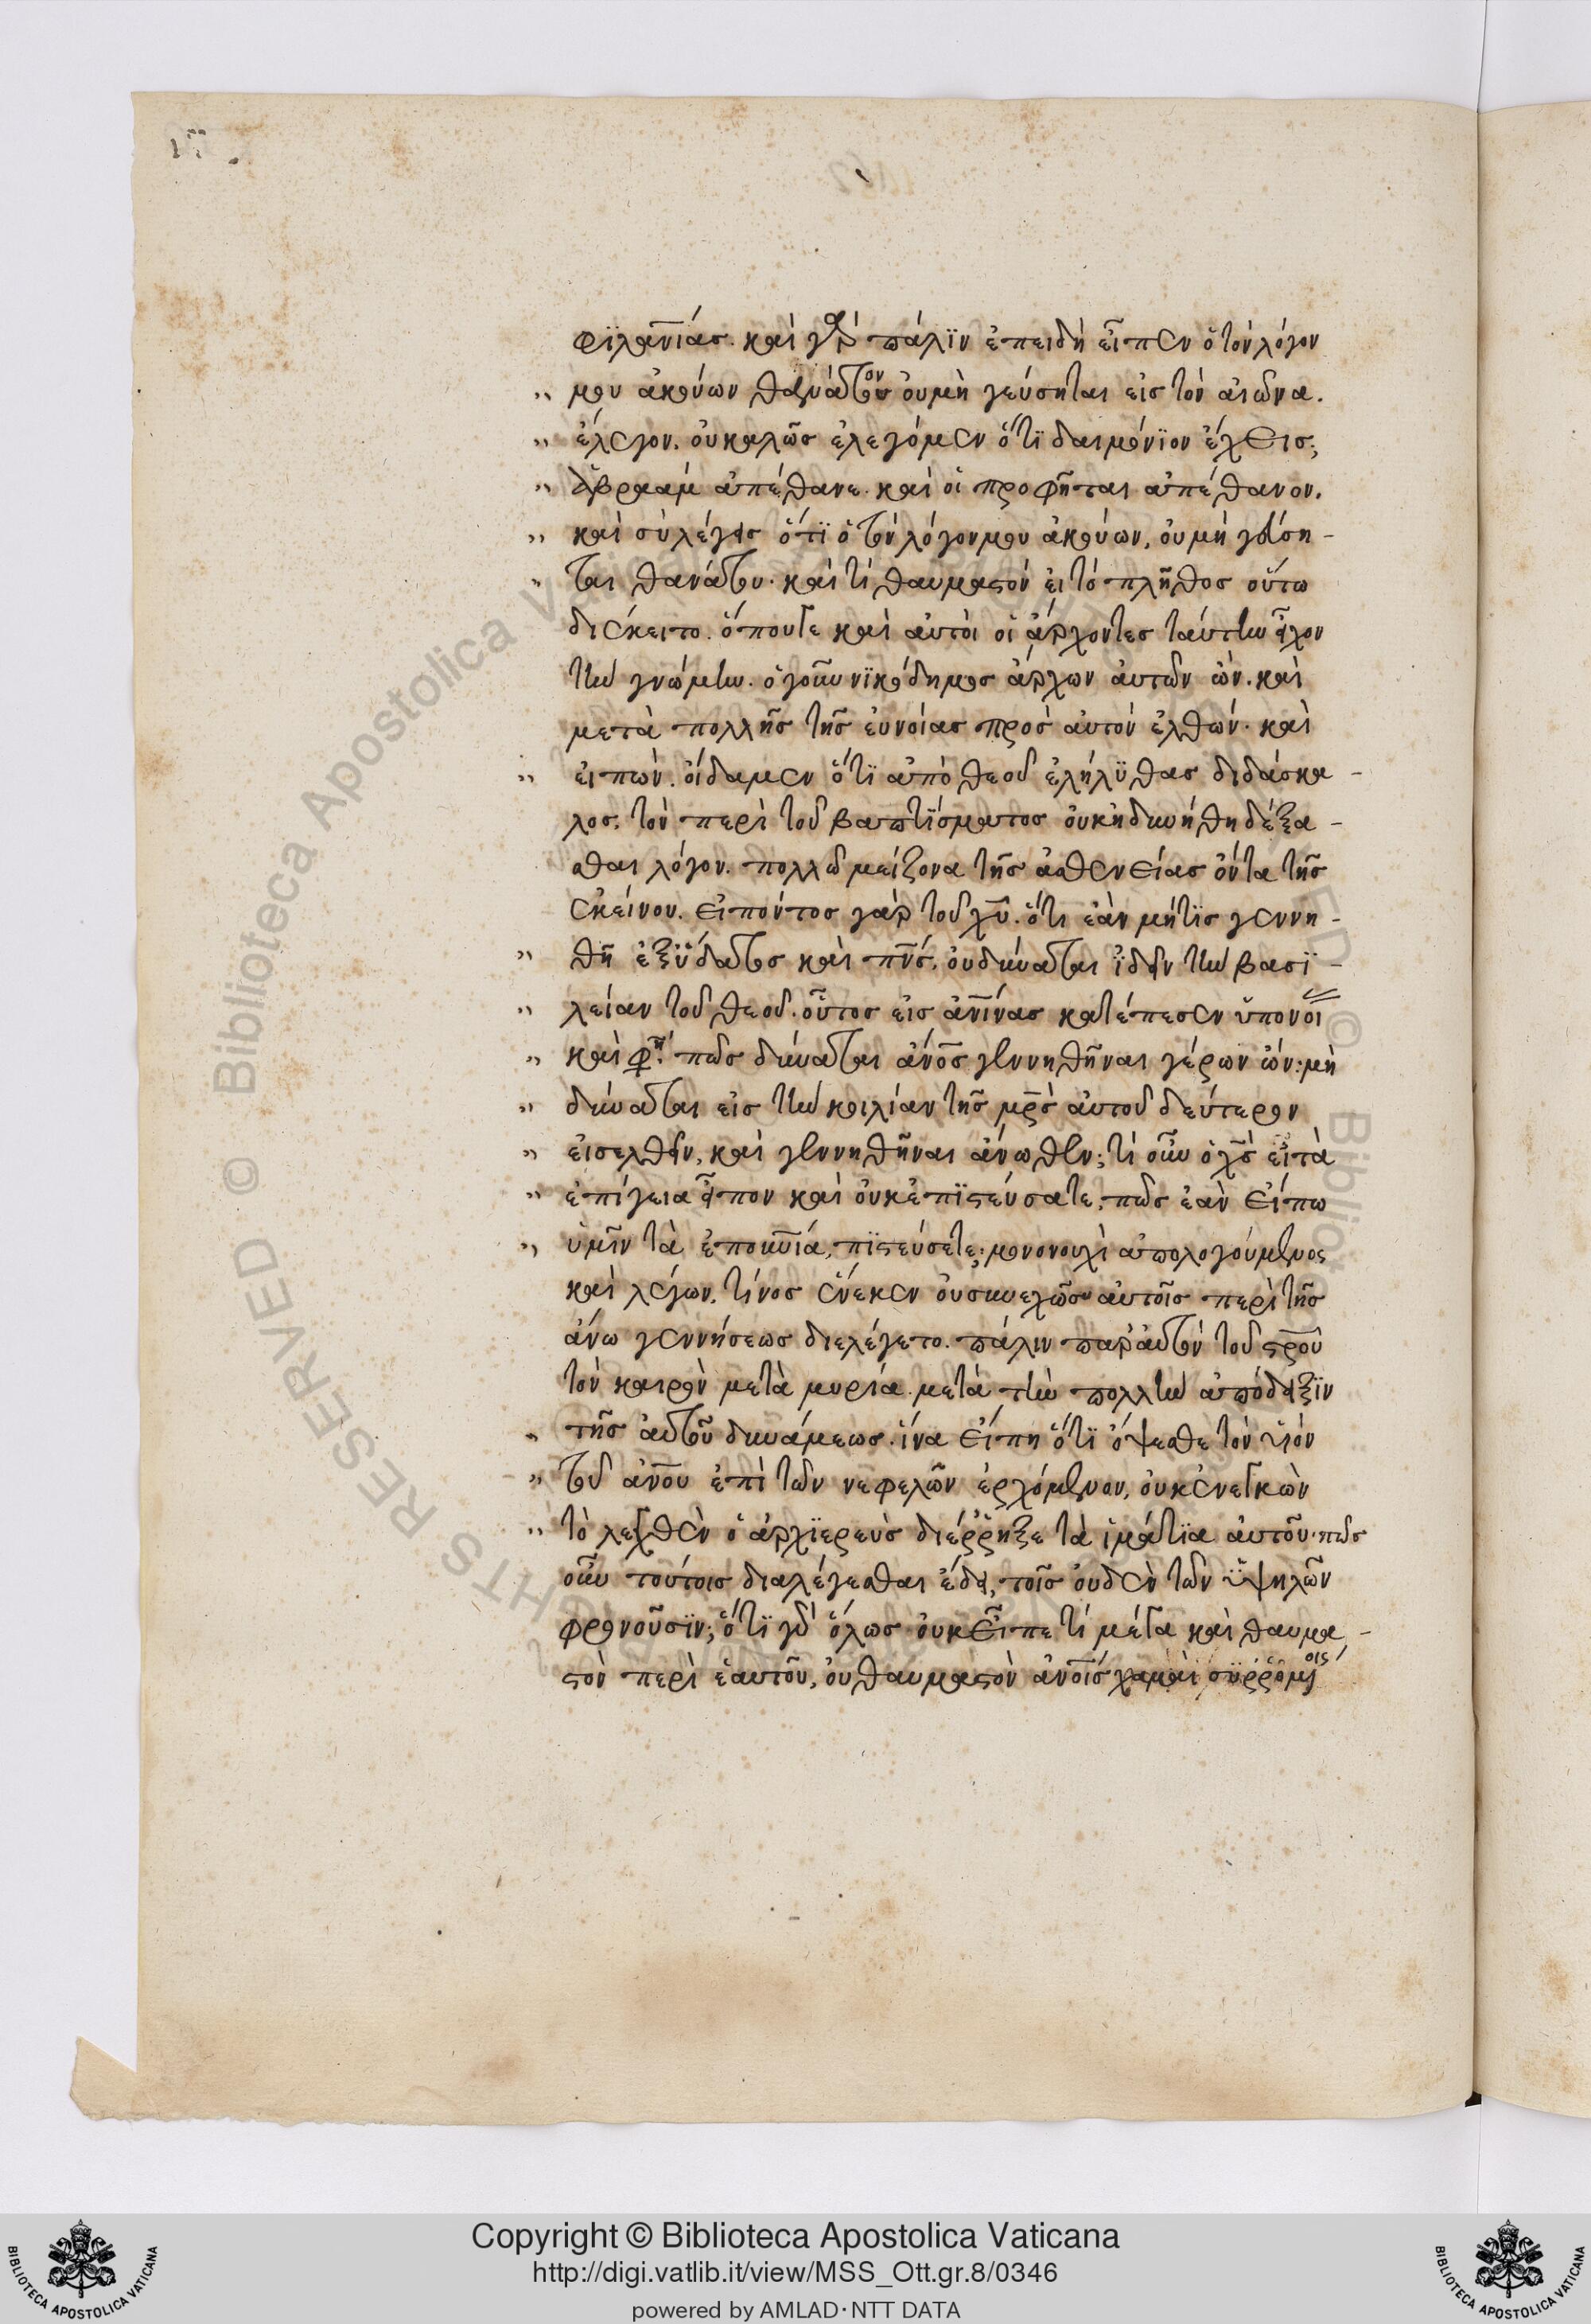 φϊλανιάς. καὶ γὰρ πάλϊν ἐπειδὴ εἶπεν ὁ τὸν λόγον
μου ἀκούων θανάτου οὐ μὴ γεύσηται εἰς τὸν αἰῶνα.
ἔλεγον. οὐ καλῶς ἐλέγομεν ὅτϊ δαιμόνϊον ἔχεις;
ἀβραὰμ ἀπέθανε. καὶ οἱ προφῆται ἀπέθανον.
καὶ σὺ λέγεις ὅτϊ ὁ τὸν λόγον μου ἀκούων, οὐ μὴ γεύση-
ται θανάτου. καὶ τί θαυμαστὸν εἰ τὸ πλῆθος οὕτω
διέκειτο. ὅπου γε καὶ αὐτοὶ οἱ ἄρχοντες ταύτην εἶχον
τὴν γνώμην. ὁ γοῦν νϊκόδημος ἄρχων αὐτῶν ὤν. καὶ
μετὰ πολλῆς τῆς εὐνοίας πρὸς αὐτὸν ἐλθών. καὶ
εἰπών. οἴδαμεν ὅτϊ ἀπὸ θεοῦ ἐλήλϋθας διδάσκα-
λος. τὸν περὶ τοῦ βαπτϊσματος οὐκ ἠδυνήθη δέξα-
σθαι λόγον. πολλῷ μείζονα τῆς ἀσθενείας ὄντα τῆς
ἐκείνου. εἰπόντος γὰρ τοῦ χῦ. ὅτι ἐὰν μή τϊς γεννη-
θῇ ἐξ ὕδατος καὶ πνς, οὐ δύναται ἰδεῖν τὴν βασϊ-
λείαν τοῦ θεοῦ. οὗτος εἰς ἀνίνας κατέπεσεν ὑπονοί
καὶ φη. πῶς δύναται ἄνος γεννηθῆναι γέρων ὤν; μὴ
δύναται εἰς τὴν κοιλίαν τῆς μρς αὐτοῦ δεύτερον
εἰσελθεῖν, καὶ γεννηθῆναι ἄνωθεν; τί οὖν ὁ χς εἰ τὰ
ἐπίγεια εἶπον καὶ οὐκ ἐπϊστεύσατε, πῶς ἐὰν εἴπω
ὑμῖν τὰ ἐπουνια, πϊστεύσετε; μονονουχὶ ἀπολογούμενος
καὶ λέγων, τίνος ἕνεκεν οὐ συνεχῶς αὐτοῖς περὶ τῆς
ἄνω γεννήσεως διελέγετο. πάλιν παρ αὐτὸν τοῦ σρου
τὸν καιρὸν μετὰ μυρία. μετὰ τὴν πολλὴν ἀπόδειξϊν
τῆς αὐτοῦ δυνάμεως. ἵνα εἴπη ὅτϊ ὄψεσθε τὸν υἱὸν
τοῦ ανου ἐπὶ τῶν νεφελῶν ἐρχόμενον, οὐκ ἐνεγκὼν
τὸ λεχθὲν ὁ ἀρχϊερεὺς διέρρηξε τὰ ἱμάτϊα αὐτοῦ. πῶς
οὖν τούτοις διαλέγεσθαι ἔδει, τοῖς οὐδὲν τῶν ὑψηλῶν
φρονοῦσϊν; ὅτϊ γὰρ ὅλως οὐκ εἶπέ τι μέγα καὶ θαυμα-
στὸν περὶ ἑαυτοῦ, οὐ θαυμαστὸν ἀνοις χαμαὶ σϋρρομένοις
Copyright © Biblioteca Apostolica Vaticana
http://digi.vatlib.it/view/MSS_Ott.gr.8/0346
powered by AMLAD·NTT DATA